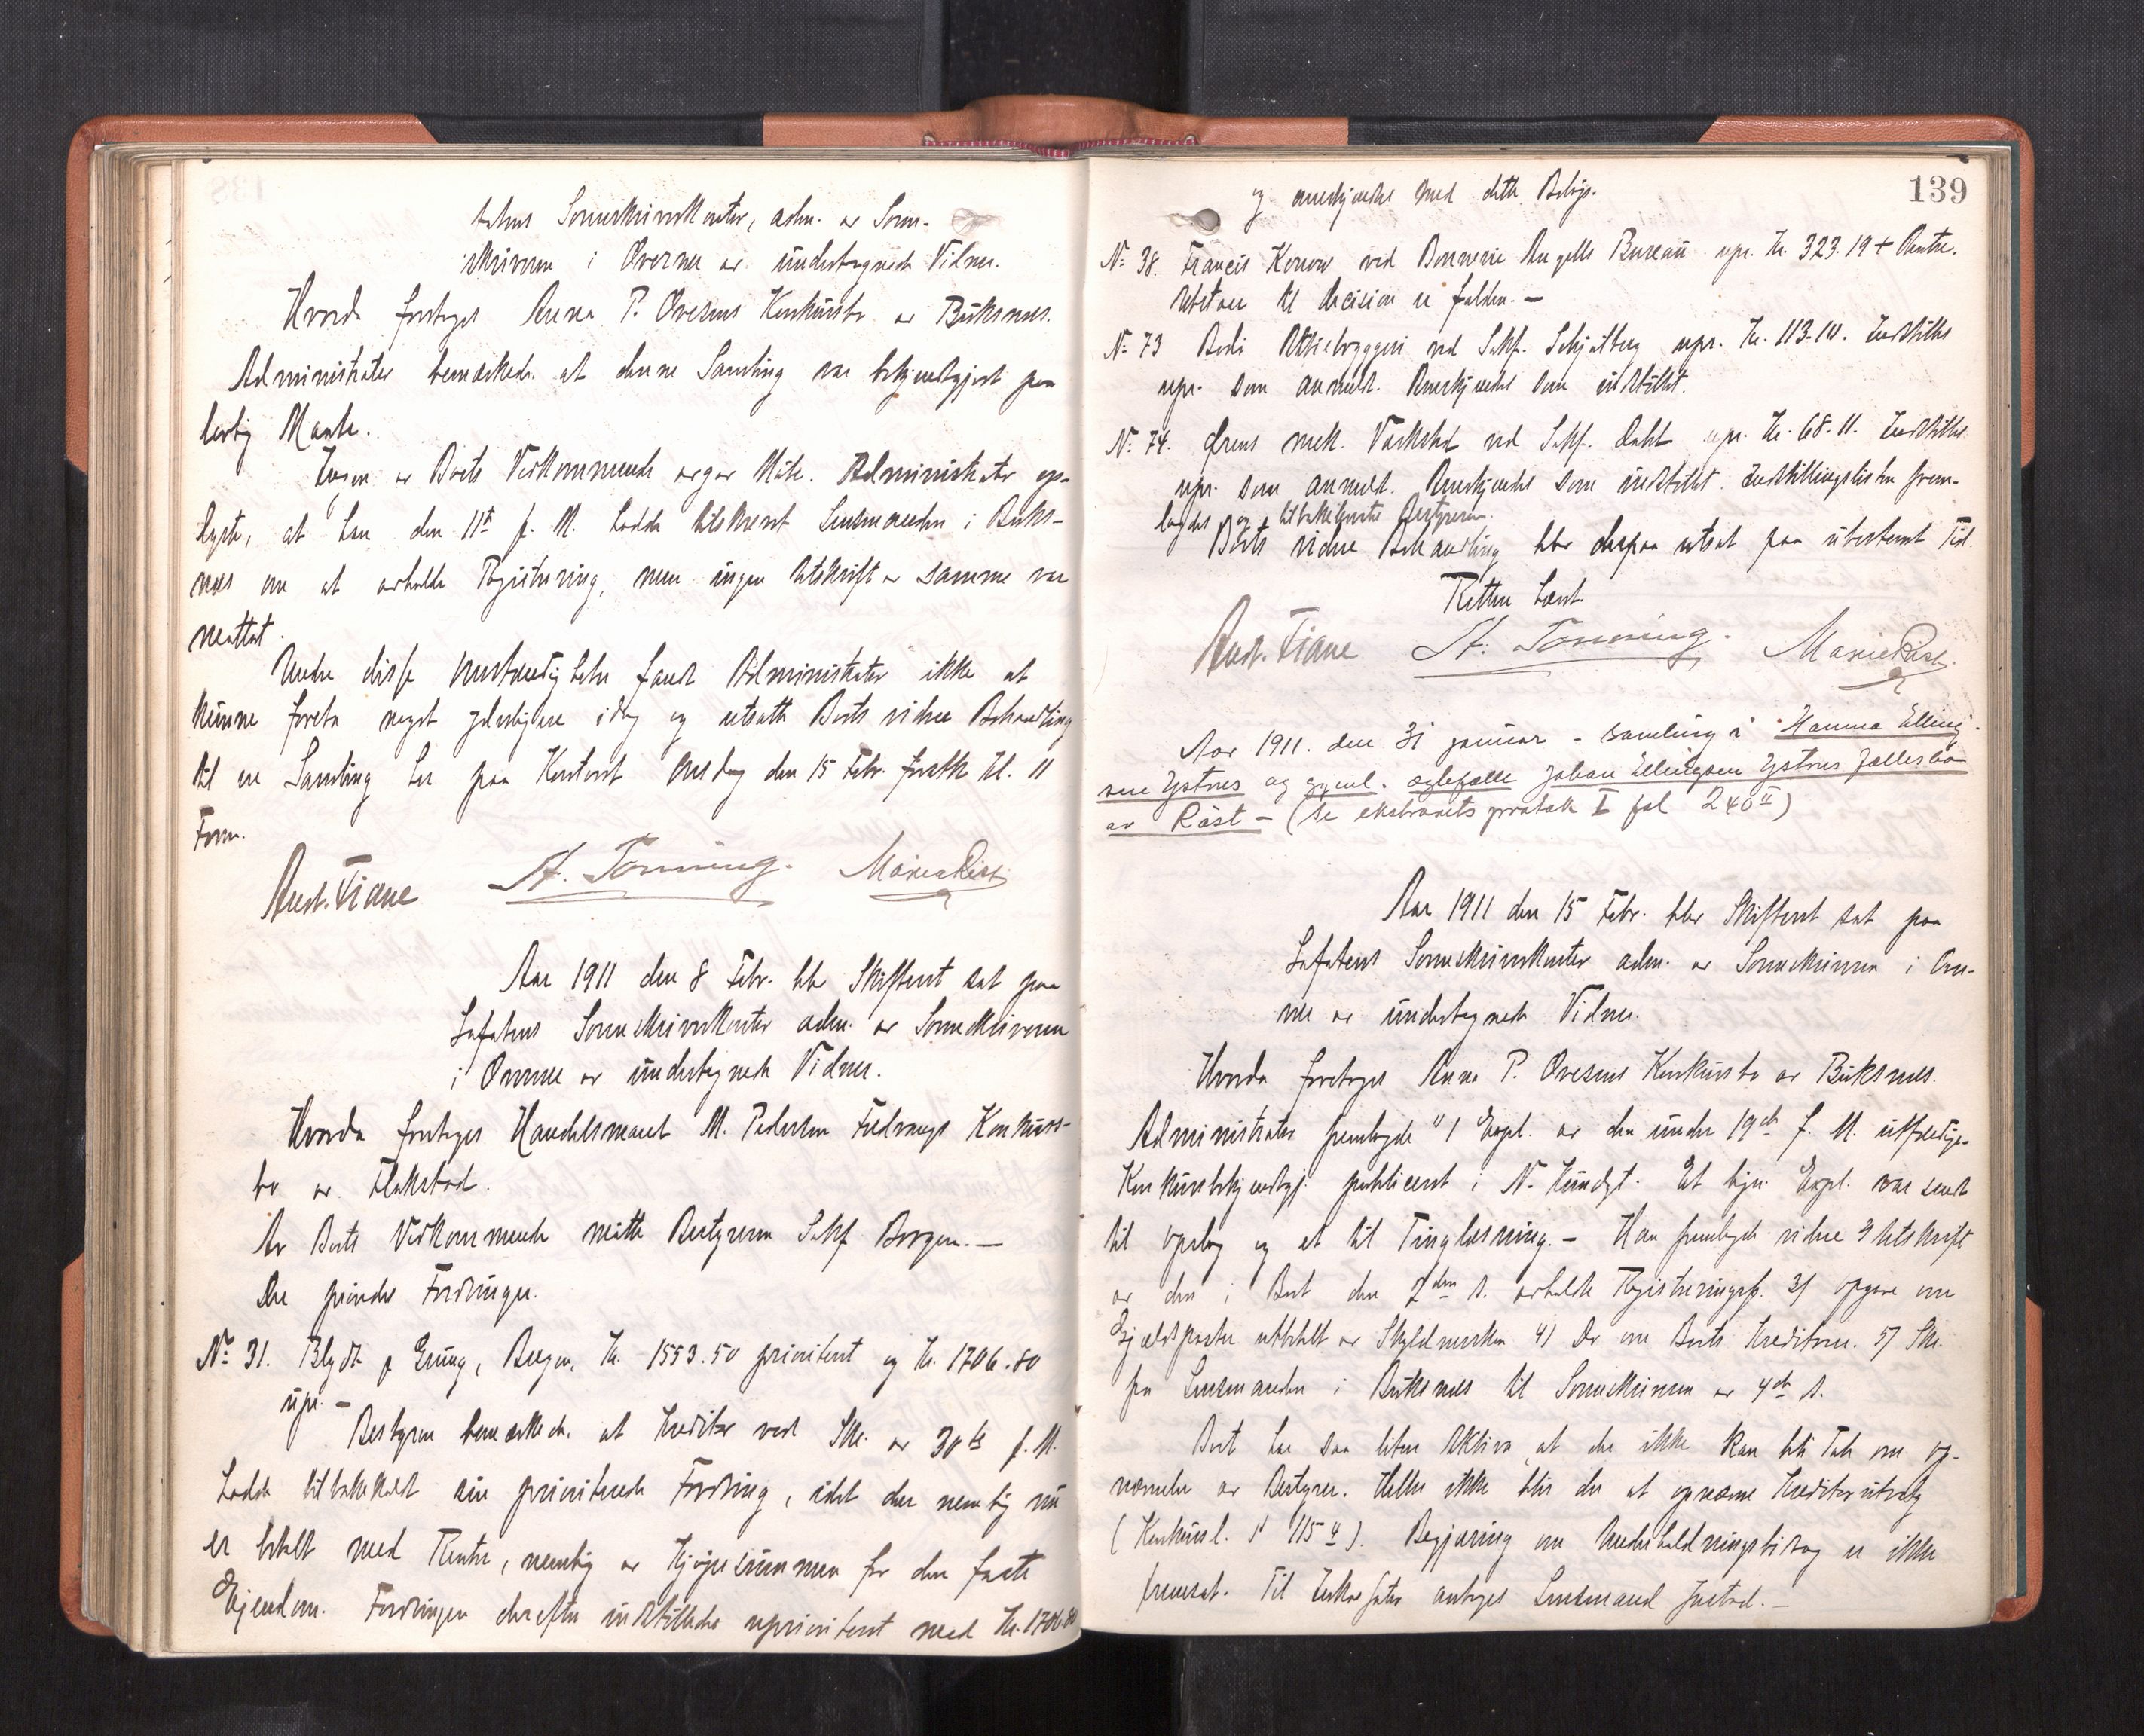 tatens Sorenskriverkontor, adm. av Soren-
skriveren i Overvær av undertegnede Vidner.
Hvorda foretoges Anna P. Ovesens Konkursbo av Buksnes.
Administrator bemærkede at denne Samling var bekjendtgjort paa
lovlig Maate.
Ingen av Boets Vedkommende avgav Møte. Administrator op-
lyste, at han den 11te f. M. hadde tilskrevet Lensmanden i Buks-
nes om at avholde Registrering, men ingen Utskrift av samme var
mottat.
Under disse Omstændigheter fandt Administrator ikke at
kunne foreta noget yderligere idag og utsatte Boets videre Behandling
til en Samling her paa Kontoret Onsdag den 15 Febr. førstk. kl. 11
Form.
Andr. Fiane St. Tonning. Marie Rist
Aar 1911 den 8 Febr. blev Skifteret sat paa
Lofotens Sorenskriverkontor adm. av Sorenskriveren
i Overvær av undertegnede Vidner.
Hvorda foretoges Handelsmand M. Pedersen Fredvangs Konkurs-
bo av Flakstad.
Av Boets Vedkommende møtte Bestyreren Sakf Borgen. —
Der prøvedes Fordringer.
No 31. Blydt & Grung, Bergen, Kr. 1553.50 prioritert og Kr. 1706.80
upr. —
Bestyrer bemærkede, at Kreditor ved Skr. av 30te f. M.
hadde tilbakekaldt sin prioriterede Fordring, idet den nemlig nu
er betalt med Renter, nemlig av Kjøpesummen for den faste
Eiendom. Fordringen derefter indstilledes uprioritert med Kr. 1706.80
139
og anerkjendtes med dette Beløp.
No 38. Francis Konow ved Bonnevie Angells Bureau upr. Kr. 323.19 + Renter.
Utstaar til decision er falden. —
No 73 Bodø Aktiebryggeri ved Sakf. Schjølberg upr. Kr. 113.10. Indstilles
upr. som anmeldt. Anerkjendtes som indstillet.
No 74. Ørens mek. Værksted ved Sakf. Dahl upr. Kr. 68.11. Indstilles
upr. som anmeldt. Anerkjendtes som indstillet. Indstillingslisten frem-
lagdes og tilbakeleverte Bestyreren.
Boets videre Behandling blev derpaa utsat paa ubestemt Tid.
Retten hævet.
Andr. Fiane St. Tonning. Marie Rist.
Aar 1911. den 31 januar - samling i Hanna Elling-
sen Ystnes og gjenl. egtefælle Johan Ellingsen Ystnes fællesbo
av Röst - (se ekstraretsprotok I fol 240II)
Aar 1911 den 15 Febr. blev Skifteret sat paa
Lofotens Sorenskriverkontor adm. av Sorenskriveren i Over-
vær av undertegnede Vidner.
Hvorda foretoges Anna P. Ovesens Konkursbo av Buksnes.
Administrator fremlagde 1) 1 Expl. av den under 19de f. M. utfærdigede
Konkursbekjendtgj. publicert i N. Kundgt. Et lign. Expl. var sendt
til opslag og et til Tinglæsning. — Han fremlagde videre 2) Utskrift
av den i Boet den 2den ds. avholdte Registreringsf. 3) opgave om
Gjældsposter utbetalt av Skyldneren 4) Do om Boets Kreditorer. 5) Skr.
fra Lensmanden i Buksnes til Sorenskriveren av 4de ds.
Boet har saa liten Aktiva, at der ikke kan bli Tale om op-
nævnelse av Bestyrer. Heller ikke blir der at opnævne Kreditorutvalg
(Konkursl. § 115 4). Begjæring om Underholdningsbidrag er ikke
fremsat. Til Inkassator antages Lensmand Justad. —